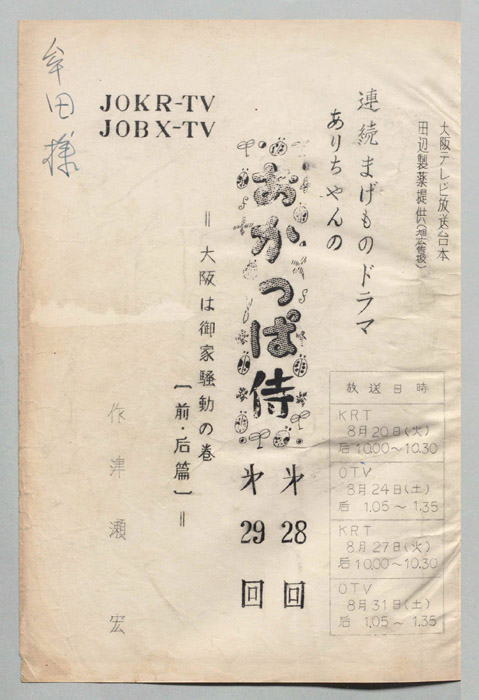 大阪テレビ放送台本
田辺製薬提供
連続まげものドラマ
ありちゃんの
おかっぱ侍
㐧28回
㐧29回
＝大阪は御家騒動の巻
〔前・后篇〕＝
作 津瀬 宏
JOKR-TV
JOBX-TV
牟田様
放送日時
KRT
8月20日(火)
后10.00〜10.30
OTV
8月24日(土)
后 1.05〜1.35
KRT
8月27日(火)
后10.00〜10.30
OTV
8月31日(土)
后 1.05〜1.35